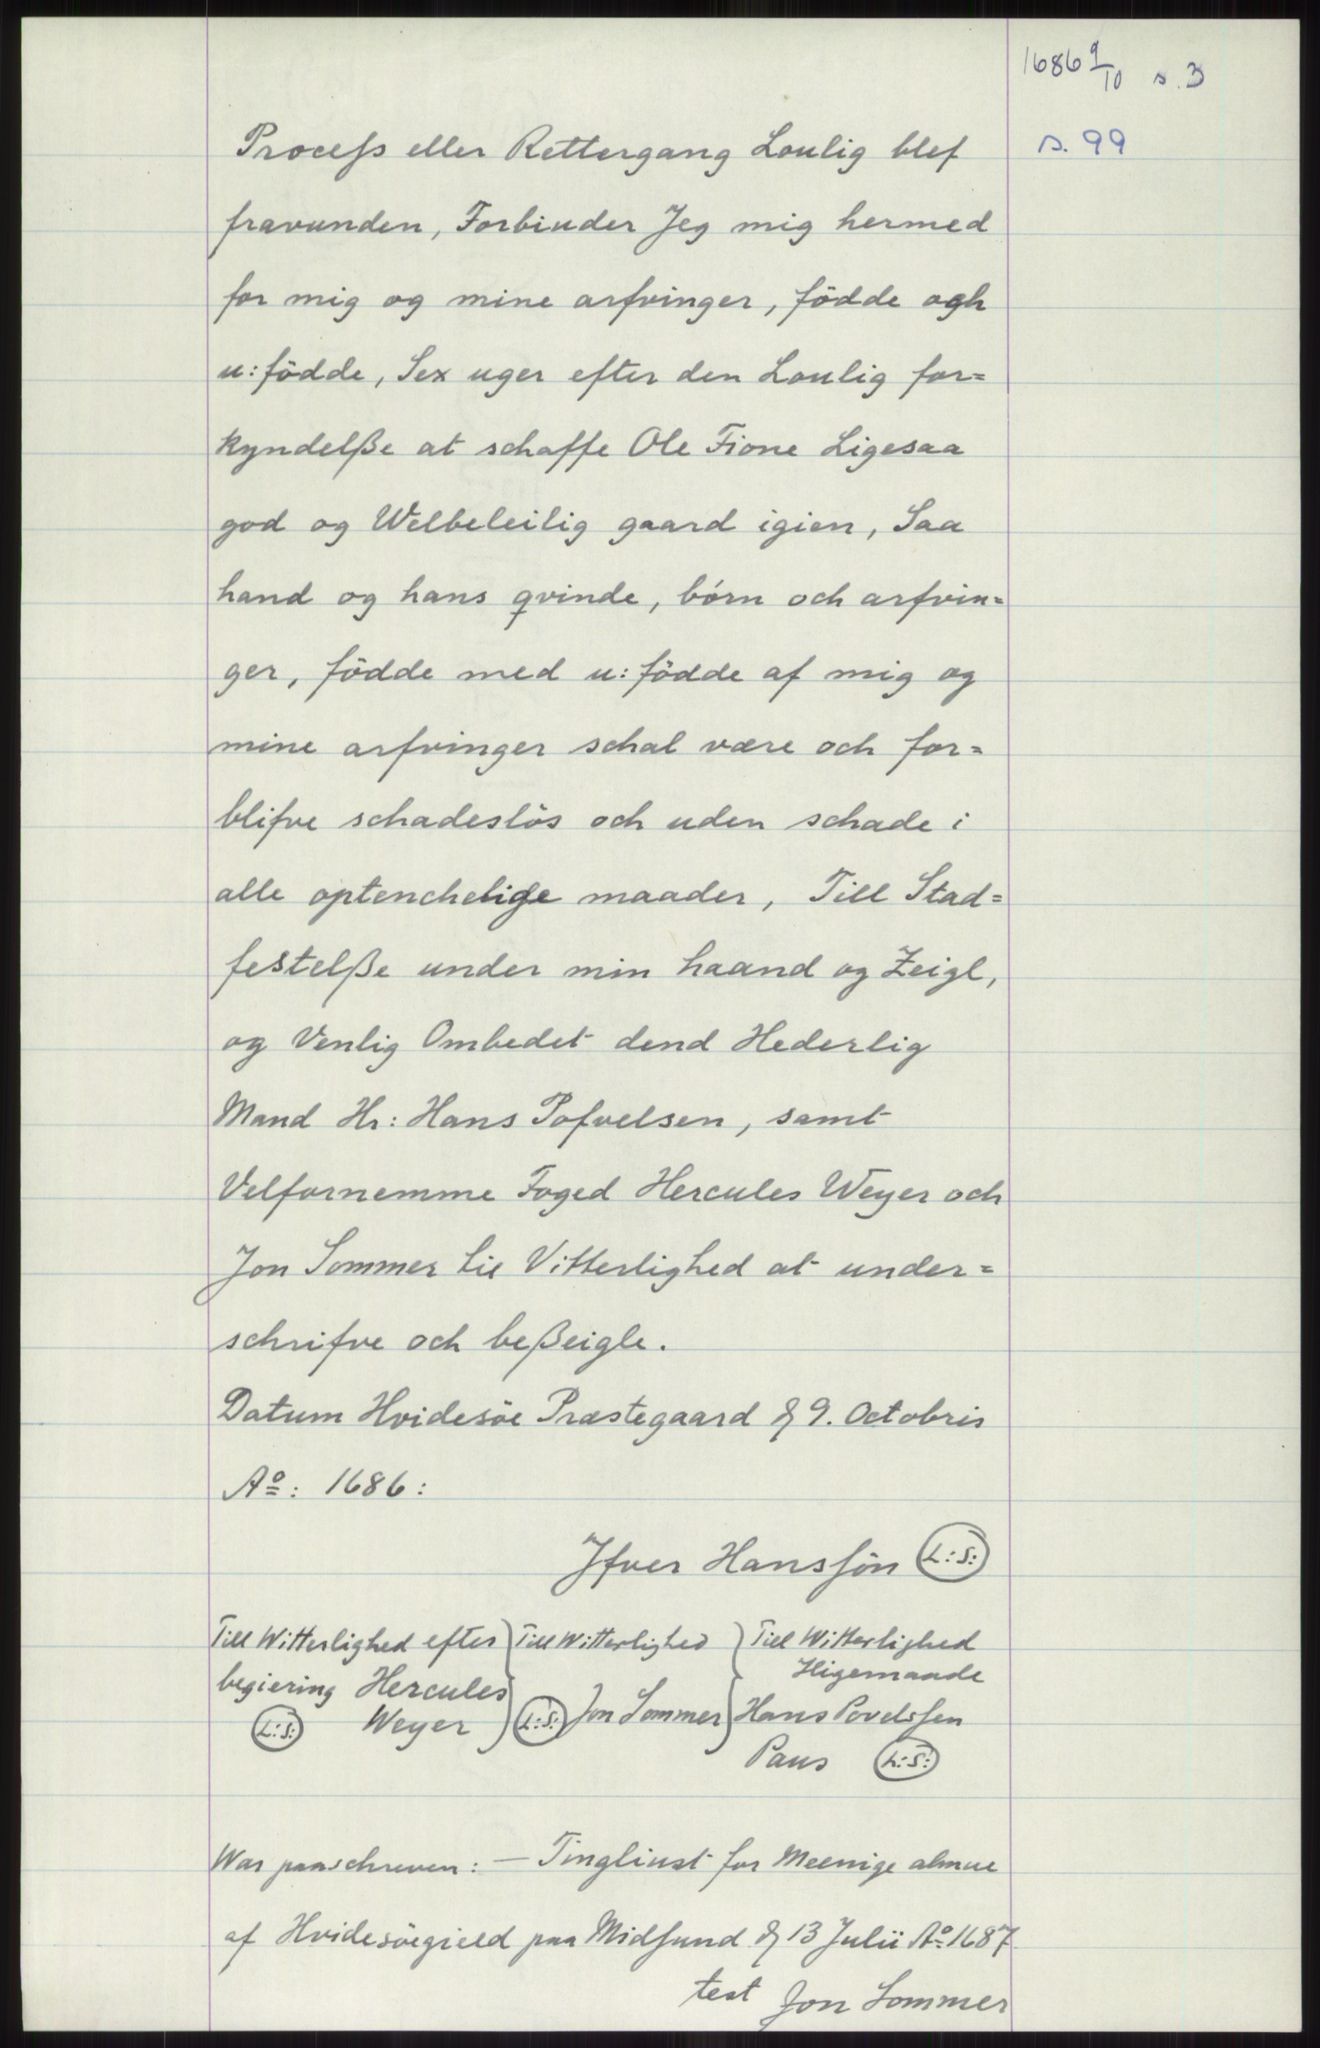 1686 9/10 s. 3
s. 99
Procefs eller Rettergang Loulig blef
fravunden, Forbinder Jeg mig hermed
for mig og mine arfvinger, födde ogh
u:födde, Sex uger efter den Loulig for=
kyndelße at schaffe Ole Fione Ligesaa
god og Welbeleilig gaard igien, Saa
hand og hans qvinde, börn och arfvin=
ger, födde med u:födde af mig og
mine arfvinger schal være och for=
blifve schadeslös och uden schade i
alle optenchelige maader, Till Stad=
festelße under min haand og Zeigl,
og Venlig Ombedet dend Hederlig
Mand Hr: Hans Pofvelsen, samt
Velfornemme Foged Hercules Weyer och
Jon Sommer til Vitterlighed at under=
schrifve och beßeigle.
Datum Hvidesöe Præstegaard d 9. Octobris
Aº: 1686:
Ifver Hansføn L:S:
Till Witterlighed efter
begiering Hercules
L:S: Weyer
Till Witterlighed
L:S: Jon Sommer
Till Witterlighed
Higemaade
Hans Povelsfen
Paus L:S:
War paaschreven: — Tingliust for Meenige almue
af Hvidesöegield paa Midfund d 13 Julii Aº 1687
test Jon Sommer